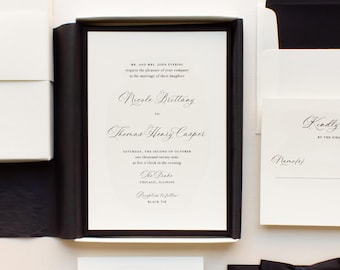 MR. AND MRS. JOHN EVERING
request the pleasure of your company
at the marriage of their daughter
Nicole Brittany
to
Thomas Henry Casper
SATURDAY, THE SECOND OF OCTOBER
one thousand twenty one
at five o'clock in the evening
The Drake
CHICAGO, ILLINOIS
Reception to follow
BLACK TIE
Kindly
BY THE FIRS
Name(s)